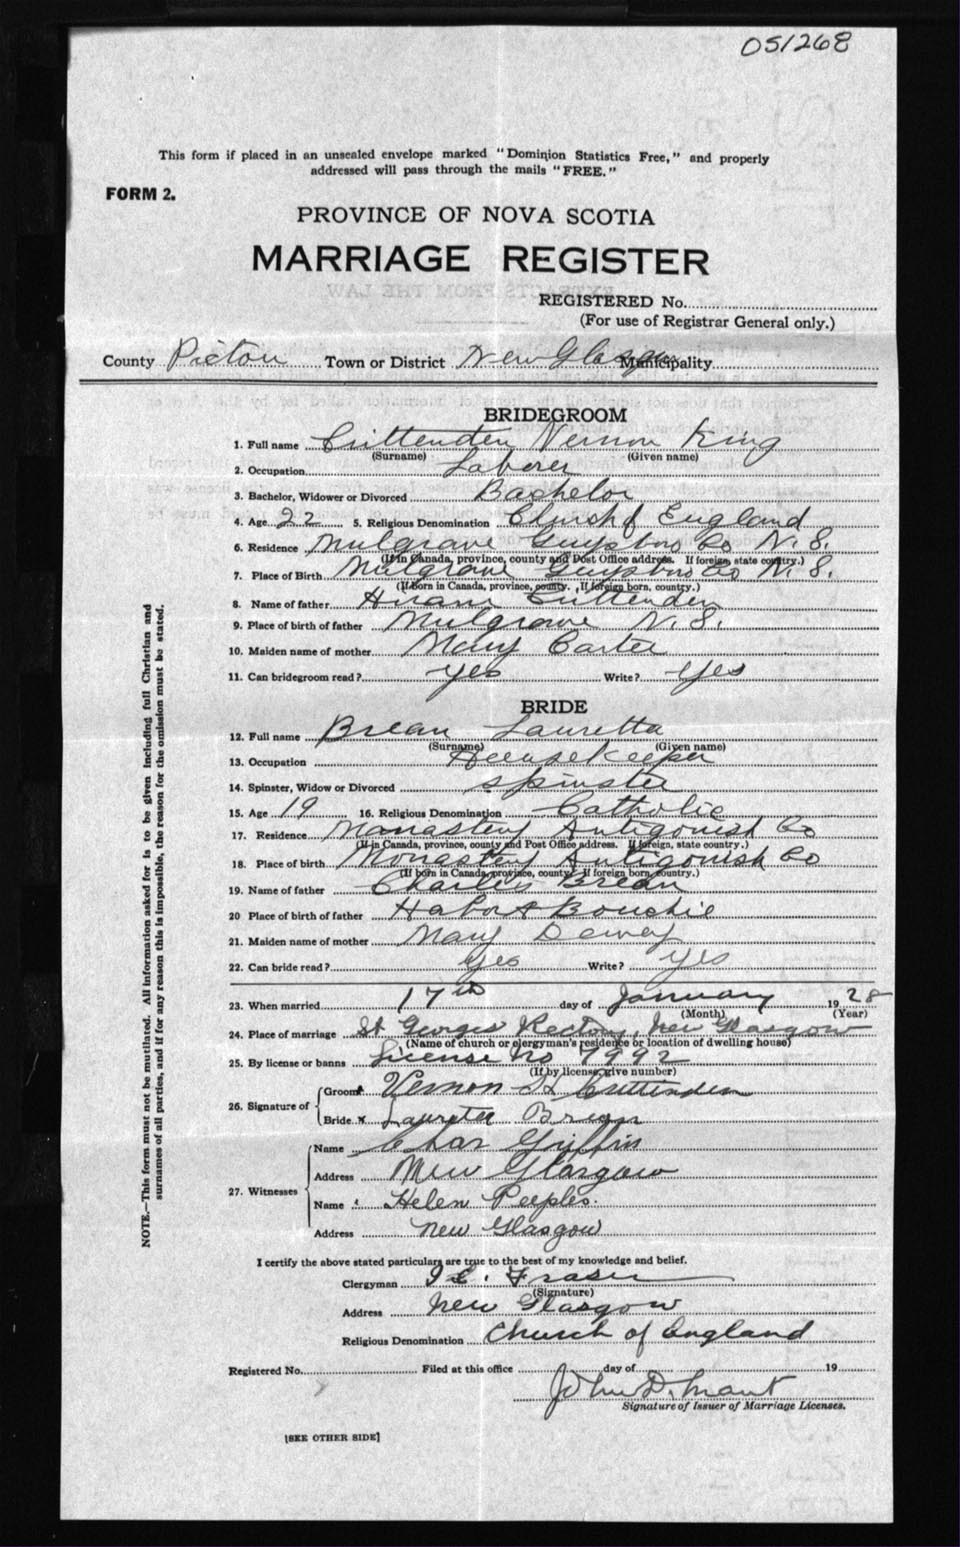 051268
This form if placed in an unsealed envelope marked "Dominion Statistics Free," and properly
addressed will pass through the mails "FREE."
FORM 2.
PROVINCE OF NOVA SCOTIA
MARRIAGE REGISTER
REGISTERED No.
(For use of Registrar General only.)
County Pictou Town or District New Glasgow Municipality
BRIDEGROOM
1. Full name Crittenden Vernon King
(Surname) (Given name)
2. Occupation Laborer
3. Bachelor, Widower or Divorced Bachelor
4. Age 22 5. Religious Denomination Church of England
6. Residence Mulgrave Guysboro Co N.S.
(If in Canada, province, county and Post Office address. If foreign, state country.)
7. Place of Birth Mulgrave Guysboro Co N.S.
(If Born in Canada, province, county. If foreign born, country.)
8. Name of father Hiram Crittenden
9. Place of birth of father Mulgrave N.S.
10. Maiden name of mother Mary Carter
11. Can bridegroom read? yes Write? yes
BRIDE
12. Full name Brean Lauretta
(Surname) (Given name)
13. Occupation Housekeeper
14. Spinster, Widow or Divorced Spinster
15. Age 19 16. Religious Denomination Catholic
17. Residence Monastery Antigonish Co
(If in Canada, province, county and Post Office address. If foreign, state country.)
18. Place of birth Monastery Antigonish Co
(If born in Canada, province, county. If foreign born, country.)
19. Name of father Charles Brean
20 Place of birth of father Habor Bouchie
21. Maiden name of mother Mary
22. Can bride read? yes Write? yes
23. When married 17th day of January 1928
(Month) (Year)
24. Place of marriage St Georges Rectory, New Glasgow
(Name of church or clergyman's residence or location of dwelling house)
25. By license or banns License No 7992
(If by license, give number)
26. Signature of Groom Vernon Crittenden
Bride x Lauretta Brean
27. Witnesses Name Chas Griffin
Address New Glasgow
Name Helen Peeples.
Address New Glasgow
I certify the above stated particulars are true to the best of my knowledge and belief.
Clergyman Fraser
(Signature)
Address New Glasgow
Religious Denomination Church of England
Registered No. Filed at this office day of 19
John D. Grant
Signature of Issuer of Marriage Licenses.
[SEE OTHER SIDE]
NOTE.—This form must not be mutilated. All information asked for is to be given including full Christian and
surnames of all parties, and if for any reason this is impossible, the reason for the omission must be stated.